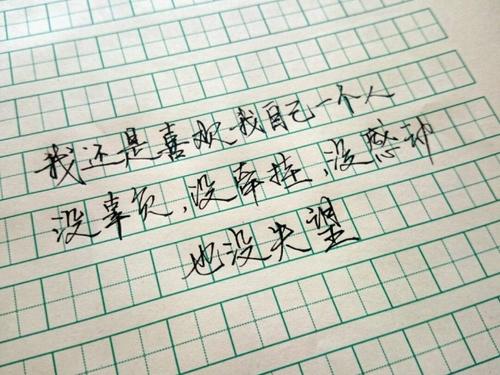 我还是喜欢我自己一个人
没辜负,没牵挂,没感动
也没失望